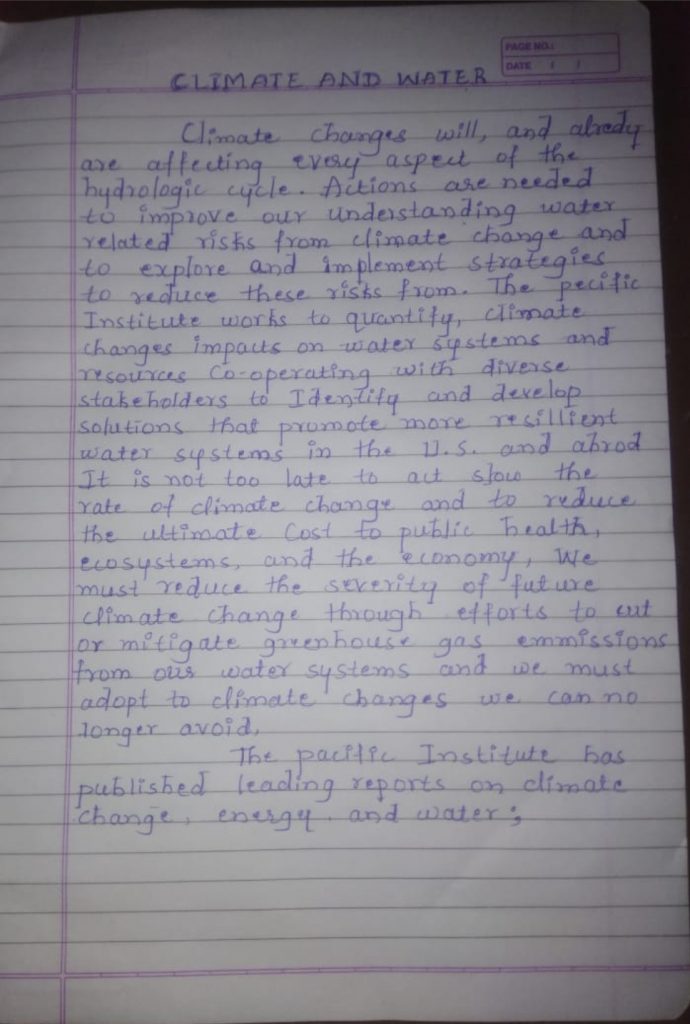 PAGE NO.:
DATE / /
CLIMATE AND WATER
Climate changes will, and alredy
are affecting every aspect of the
hydrologic cycle. Actions are needed
to improve our understanding water
related risks from climate change and
to explore and implement strategies
to reduce these risks from. The pecific
Institute works to quantify, climate
changes impacts on water systems and
resources Co-operating with diverse
stakeholders to Identify and develop
solutions that promote more resillient
water systems in the U.S. and abrod
It is not too late to act slow the
rate of climate change and to reduce
the ultimate Cost to public health,
ecosystems, and the economy, We
must reduce the severity of future
climate change through efforts to cut
or mitigate greenhouse gas emmissions
from our water systems and we must
adopt to climate changes we can no
longer avoid,
The pacific Institute has
published leading reports on climate
change, energy. and water;